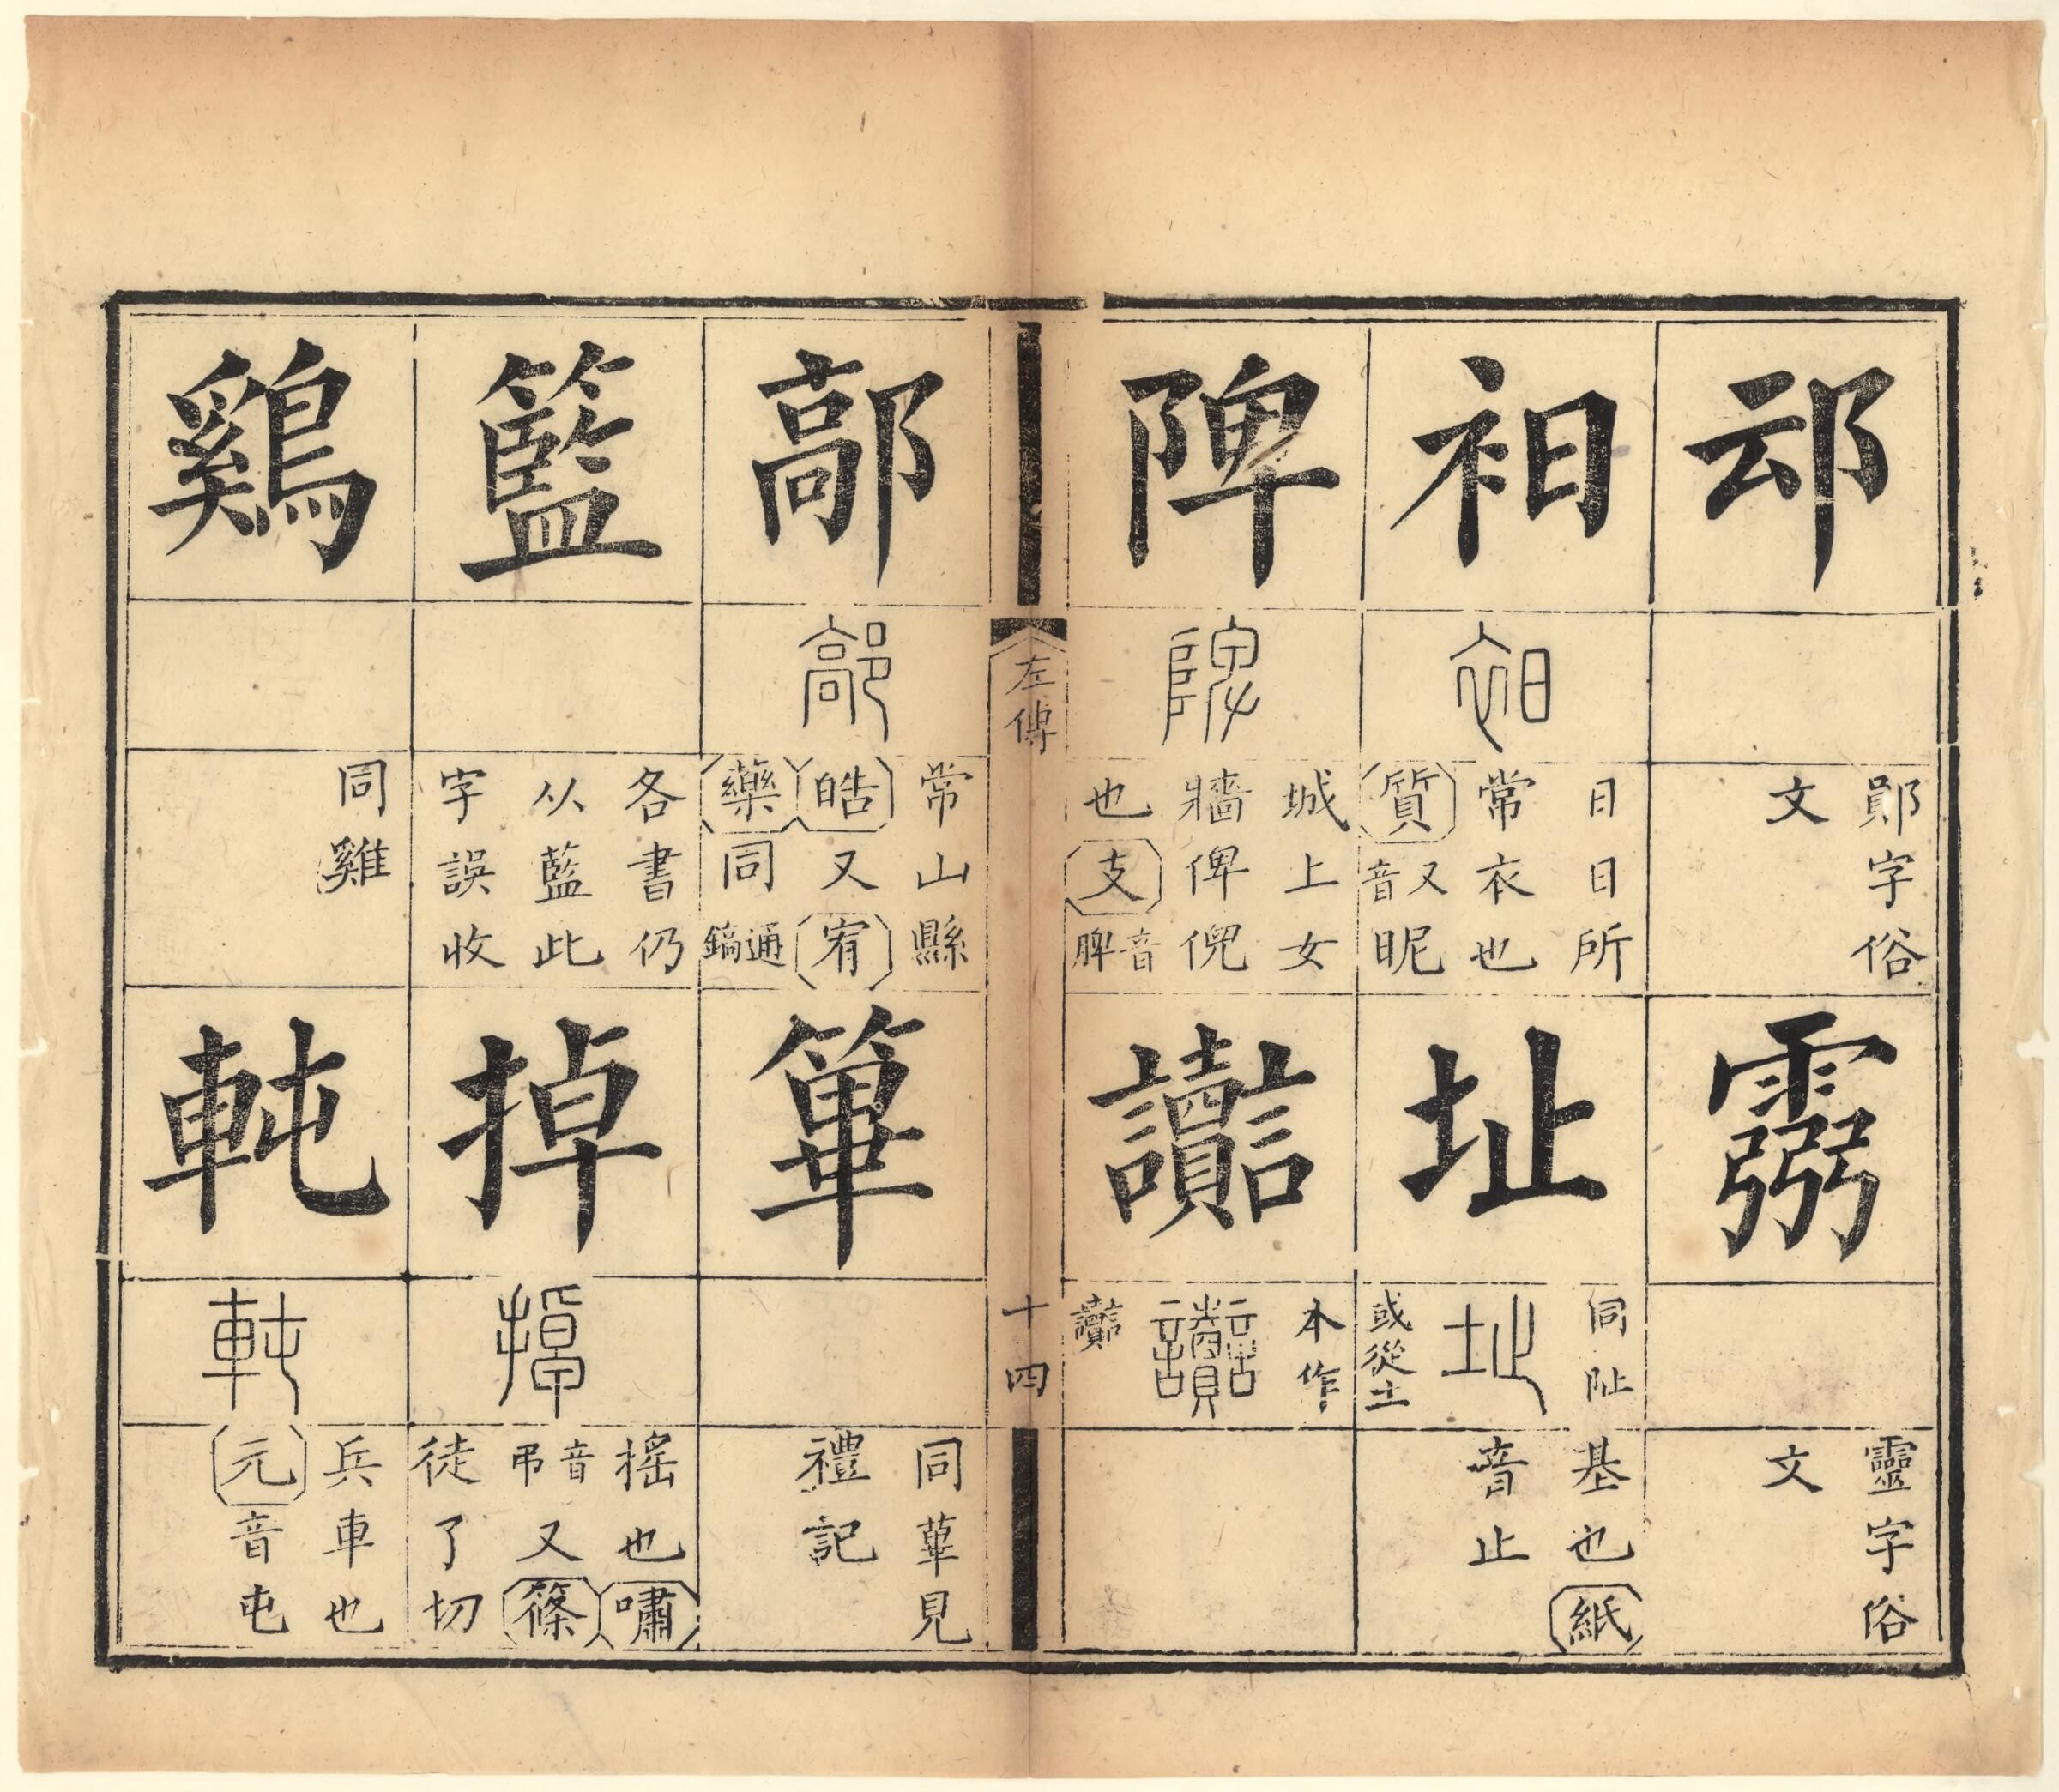 䢵
鄖字俗
文
靈字俗
文
衵
衵
日日所
常衣也
質又音昵
址
同阯
址
或從土
基也紙
音止
陴
陴
城上女
牆俾倪
也支音脾
讟
本作
讟
讟
左傳
十四
鄗
鄗
常山縣
皓又宥
藥同通鎬
篳
同蓽見
禮記
籃
各書仍
从藍此
字誤收
掉
掉
搖也嘯
音弔又篠
徒了切
鷄
同雞
軘
軘
兵車也
元音屯